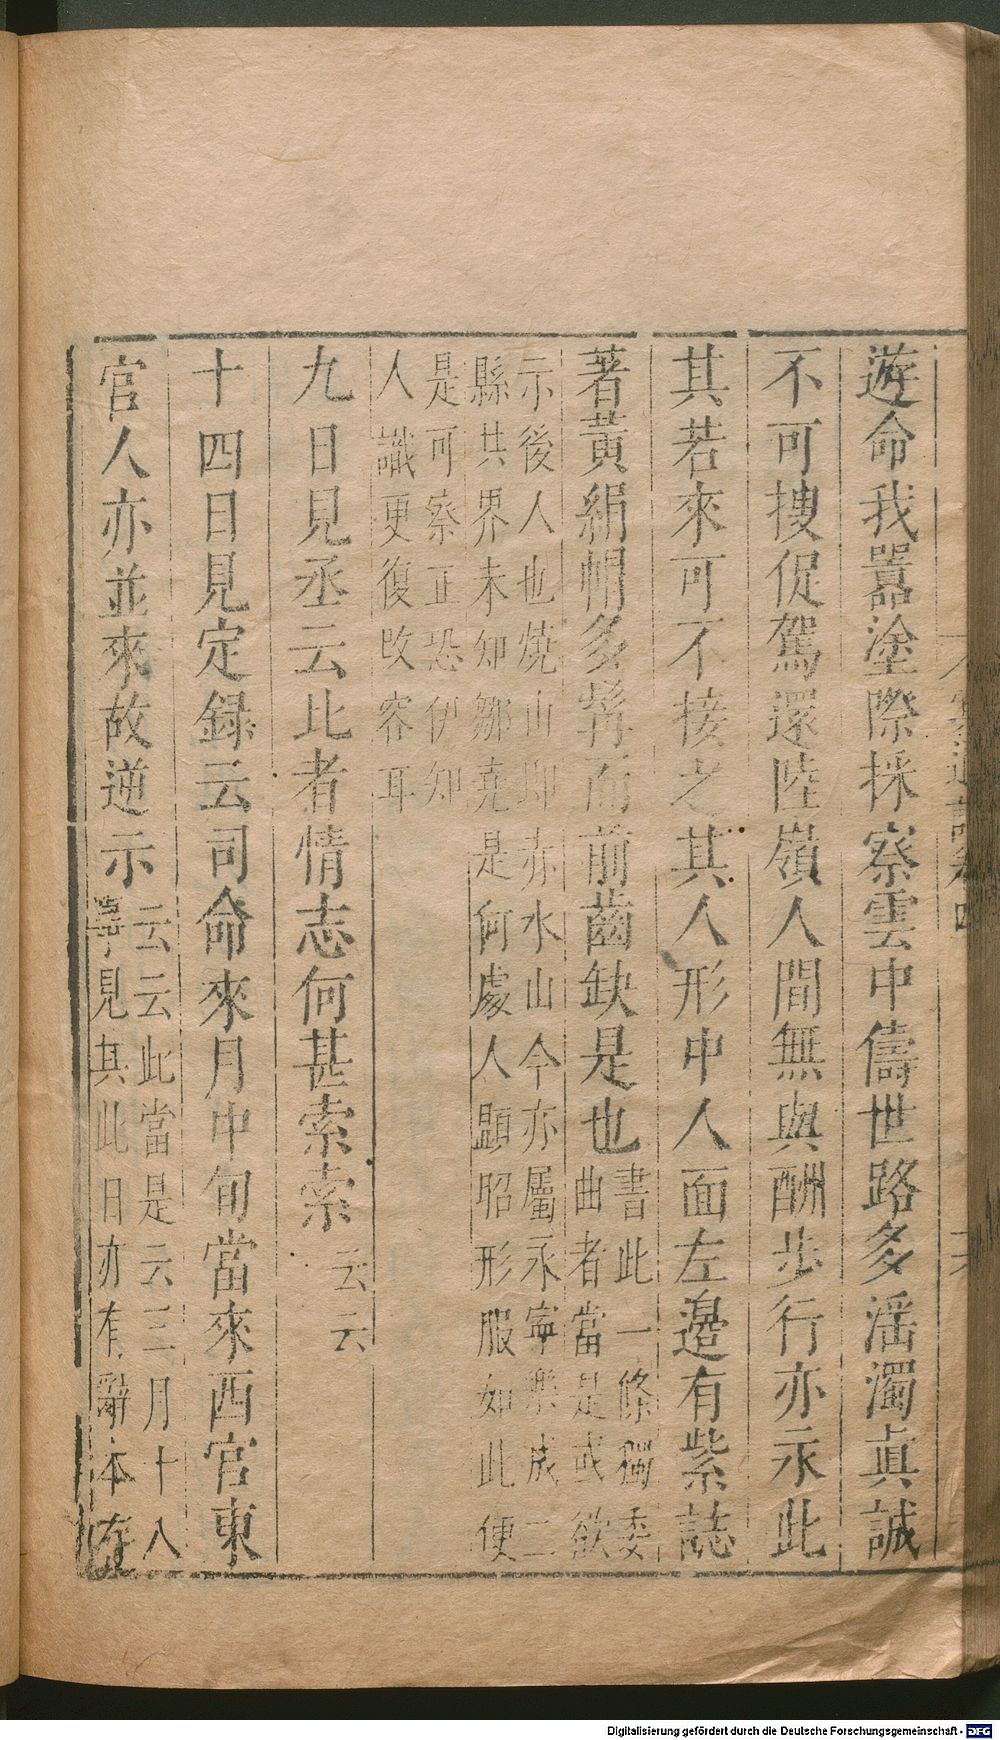 遊命我嚣塗際採察雲中儔世路多淫濁眞誠
不可搜促駕還陸嶺人間無與酬步行亦永此
其若來可不接之其人形中人面左邉有紫誌
著黃絹帽多髯而前齒缺是也書此一條獨委
曲者當是或欲
示後人也燒山即赤水山今亦屬永寧樂成二
縣共界未知鄒堯是何處人顯昭形服如此便
是可察正恐伊知
人識更復改容耳
九日見丞云此者情志何甚索索云云
十四日見定録云司命來月中旬當來西宮東
宮人亦並來故逆示云云此當是云三月十八
寧見其此日亦有辭本在
周氏冥通記卷四
Digitalisierung gefördert durch die Deutsche Forschungsgemeinschaft - DFG